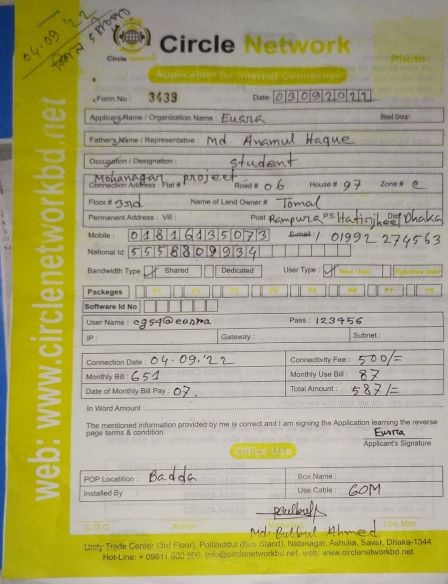 04.09.'22
Circle Network
Circle Network
Application for Internet Connection
Photo
Form No : 3439 Date: 03092022
Applicant Name / Organization Name : Eusra Blood Group
Father's Name / Representative : Md. Anamul Haque
Occupation / Designation : Student
Mohanagar project
Connection Address : Flat # Road # 06 House # 97 Zone # C
Floor # 3rd Name of Land Owner # Tomal
Permanent Address : Vill : Post Rampura P.S Hatirjheel Dist Dhaka
Mobile : 01816135073 E-mail / 01992 274563
National Id: 5558809934
Bandwidth Type Shared Dedicated User Type : New User
Packeges P1 P2 P3 P4 P5 P6 P7 P8
Software Id No
User Name : cg59@eusra Pass : 123456
IP : Gateway : Subnet :
Connection Date : 04.09.'22 Connectivity Fee : 500/=
Monthly Bill : 651 Monthly Use Bill : 87
Date of Monthly Bill Pay : 07. Total Amount : 587/=
In Word Amount :
The mentioned information provided by me is correct and I am signing the Application learning the reverse
page terms & condition. Eusra
Applicant's Signature
Office Use
POP Location : Badda Box Name :
Installed By : Use Cable : 60M
Md. Bulbul Ahmed
C O O Admin Line Man
Unity Trade Center (3rd Floor), Pollibiddut (Bus Stand), Nabinagar, Ashulia, Savar, Dhaka-1344
Hot-Line: + 09611 800 900, info@circlenetworkbd.net, web: www.circlenetworkbd.net
web: www.circlenetworkbd.net